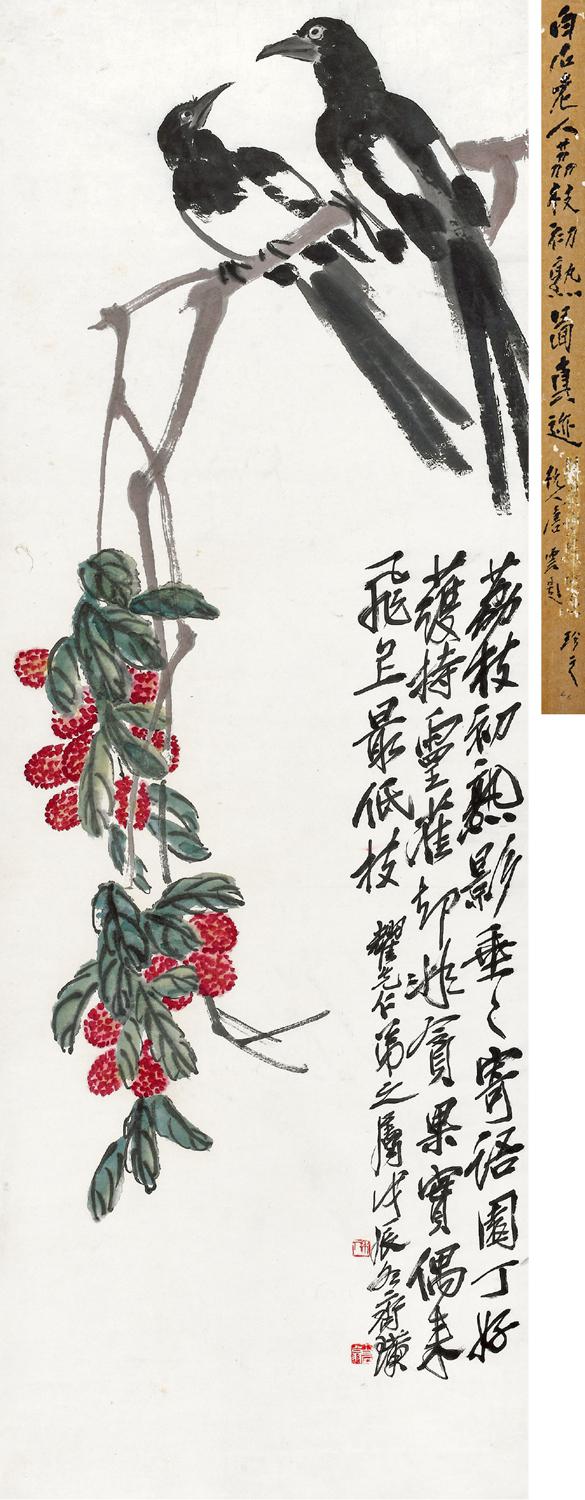 白石老人荔枝初熟圖真迹
杭人唐雲題
荔枝初熟影垂〻寄語園丁好
護持靈雀却非貪果實偶來
飛上最低枝
耀先仁弟之屬戊辰冬齊璜